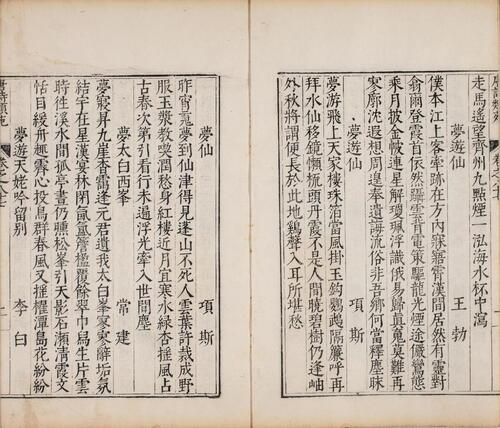 走馬遙望齊州九點煙一泓海水杯中瀉
夢遊仙 王勃
僕本江上客牽跡在方內寤寐霄漢間居然有靈對
翁爾登霞首依然躡雲背電策驅龍光煙途儼鸞態
乘月披金帔連星解瓊珮浮識俄易歸真莫難再
寥廓沈遐想周遑奉遺誨流俗非吾鄉何當釋塵昧
夢遊仙 項斯
夢遊飛上天家樓珠箔當風掛玉鈎鸚鵡隔簾呼再
拜水仙移鏡懶梳頭丹霞不是人間曉碧樹仍逢岫
外秋將謂便長於此地鷄聲入耳所堪愁
夢仙 項斯
昨宵魂夢到仙津得見蓬山不死人雲葉許裁成野
服玉漿教喫潤愁身紅樓近月宜寒水綠杏搖風占
古春次第引看行未遍浮光入世間塵
夢太白西峯 常建
夢寐昇九崖杳靄逢元君遺我太白峯寥寥辭垢氛
結宇在星漢宴林閉氤氳簷楹覆餘翠巾舄生片雲
時往溪水間孤亭晝仍曛松峯引天影石瀨清霞文
恬目緩舟趣霽心投鳥群春風又搖櫂潭島花紛紛
夢遊天姥吟留別 李白
唐詩類苑
二